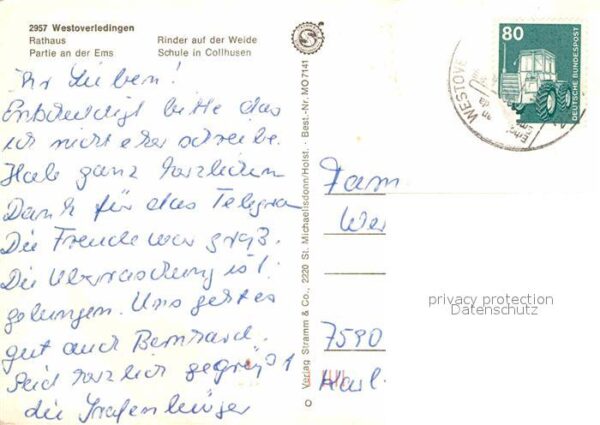 2957 Westoverledingen
Rathaus Rinder auf der Weide
Partie an der Ems Schule in Collhusen
Ihr Lieben!
Entschuldigt bitte das
ich nicht eher schreibe.
Hab ganz herzlichen
Dank für das Telegra
Die Freude war groß.
Die Überraschung ist
gelungen. Uns geht es
gut auch Bernhard.
Seid herzlich gegrüßt
die
Verlag Stramm & Co., 2220 St. Michaelisdonn/Holst. · Best.-Nr. MO7141
80
DEUTSCHE BUNDESPOST
WESTOVE
Fam
Wer
7590
privacy protection
Datenschutz